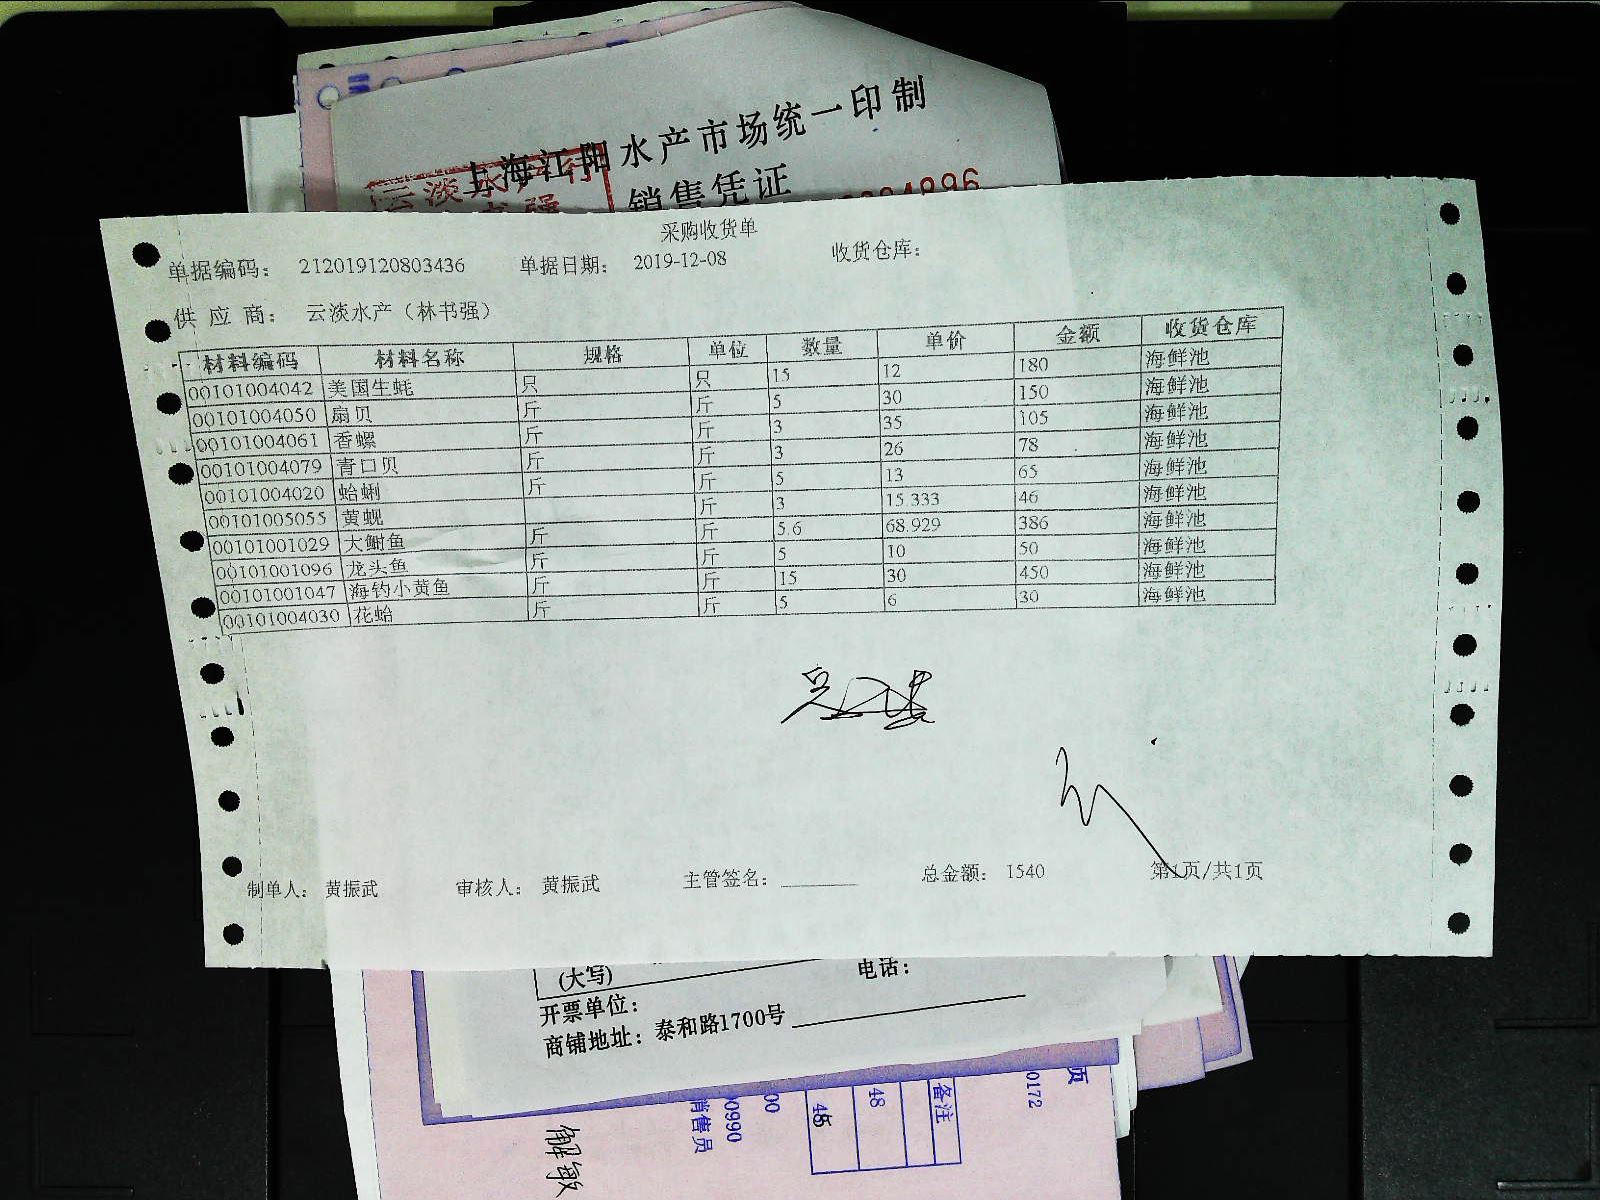 上海江阳水产市场统一印制
云淡水产行
销售凭证
采购收货单
单据编码： 212019120803436 单据日期： 2019-12-08 收货仓库：
供应商： 云淡水产（林书强）
材料编码 材料名称 规格 单位 数量 单价 金额 收货仓库
00101004042 美国生蚝 只 只 15 12 180 海鲜池
00101004050 扇贝 斤 斤 5 30 150 海鲜池
00101004061 香螺 斤 斤 3 35 105 海鲜池
00101004079 青口贝 斤 斤 3 26 78 海鲜池
00101004020 蛤蜊 斤 斤 5 13 65 海鲜池
00101005055 黄蚬 斤 3 15.333 46 海鲜池
00101001029 大鲥鱼 斤 斤 5.6 68.929 386 海鲜池
00101001096 龙头鱼 斤 斤 5 10 50 海鲜池
00101001047 海钓小黄鱼 斤 斤 15 30 450 海鲜池
00101004030 花蛤 斤 斤 5 6 30 海鲜池
制单人： 黄振武 审核人： 黄振武 主管签名： 总金额： 1540 第1页/共1页
(大写) 电话：
开票单位：
商铺地址：泰和路1700号
备注
48
48
00
00990
销售员
页
0172